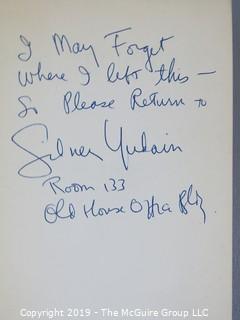 I May Forget
where I left this —
So Please Return to
Sidney Yudain
Room 133
Old House Office Bldg.
Copyright 2019 - The McGuire Group LLC